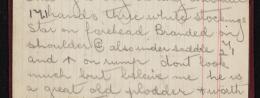 17½ hands three white stockings
Star on forehead Branded on
shoulder @ also under saddle
and ↑ on rump dont look
much but believe me he is
a great old plodder + worth